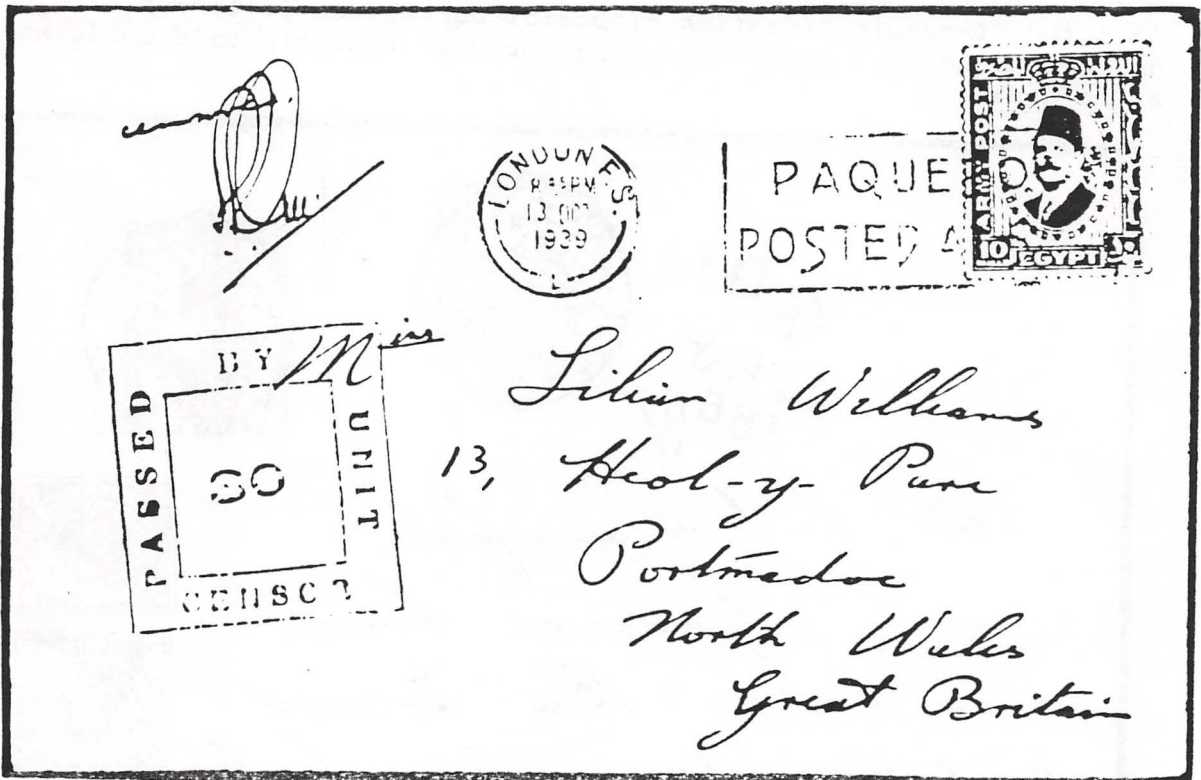 LONDON F.S.
8 45 PM
13 OCT
1939
PAQUE
POSTED A
ARMY POST
10 EGYPT ١٠
PASSED BY UNIT CENSOR
Miss
Lilian Williams
13, Heol-y- Parc
Portmadoc
North Wales
Great Britain